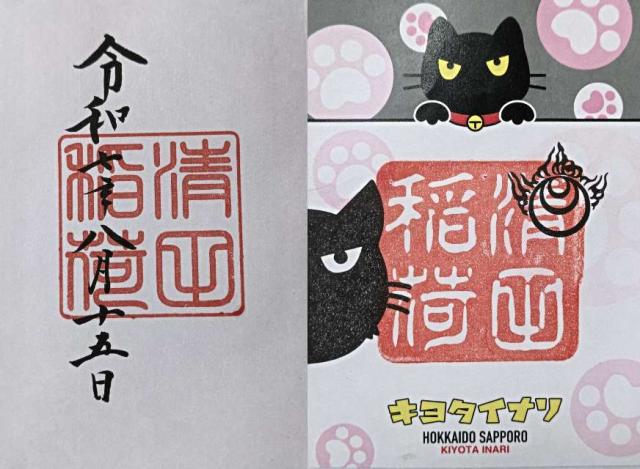 令和七年八月十五日
清田
稲荷
清田
稲荷
キヨタイナリ
HOKKAIDO SAPPORO
KIYOTA INARI